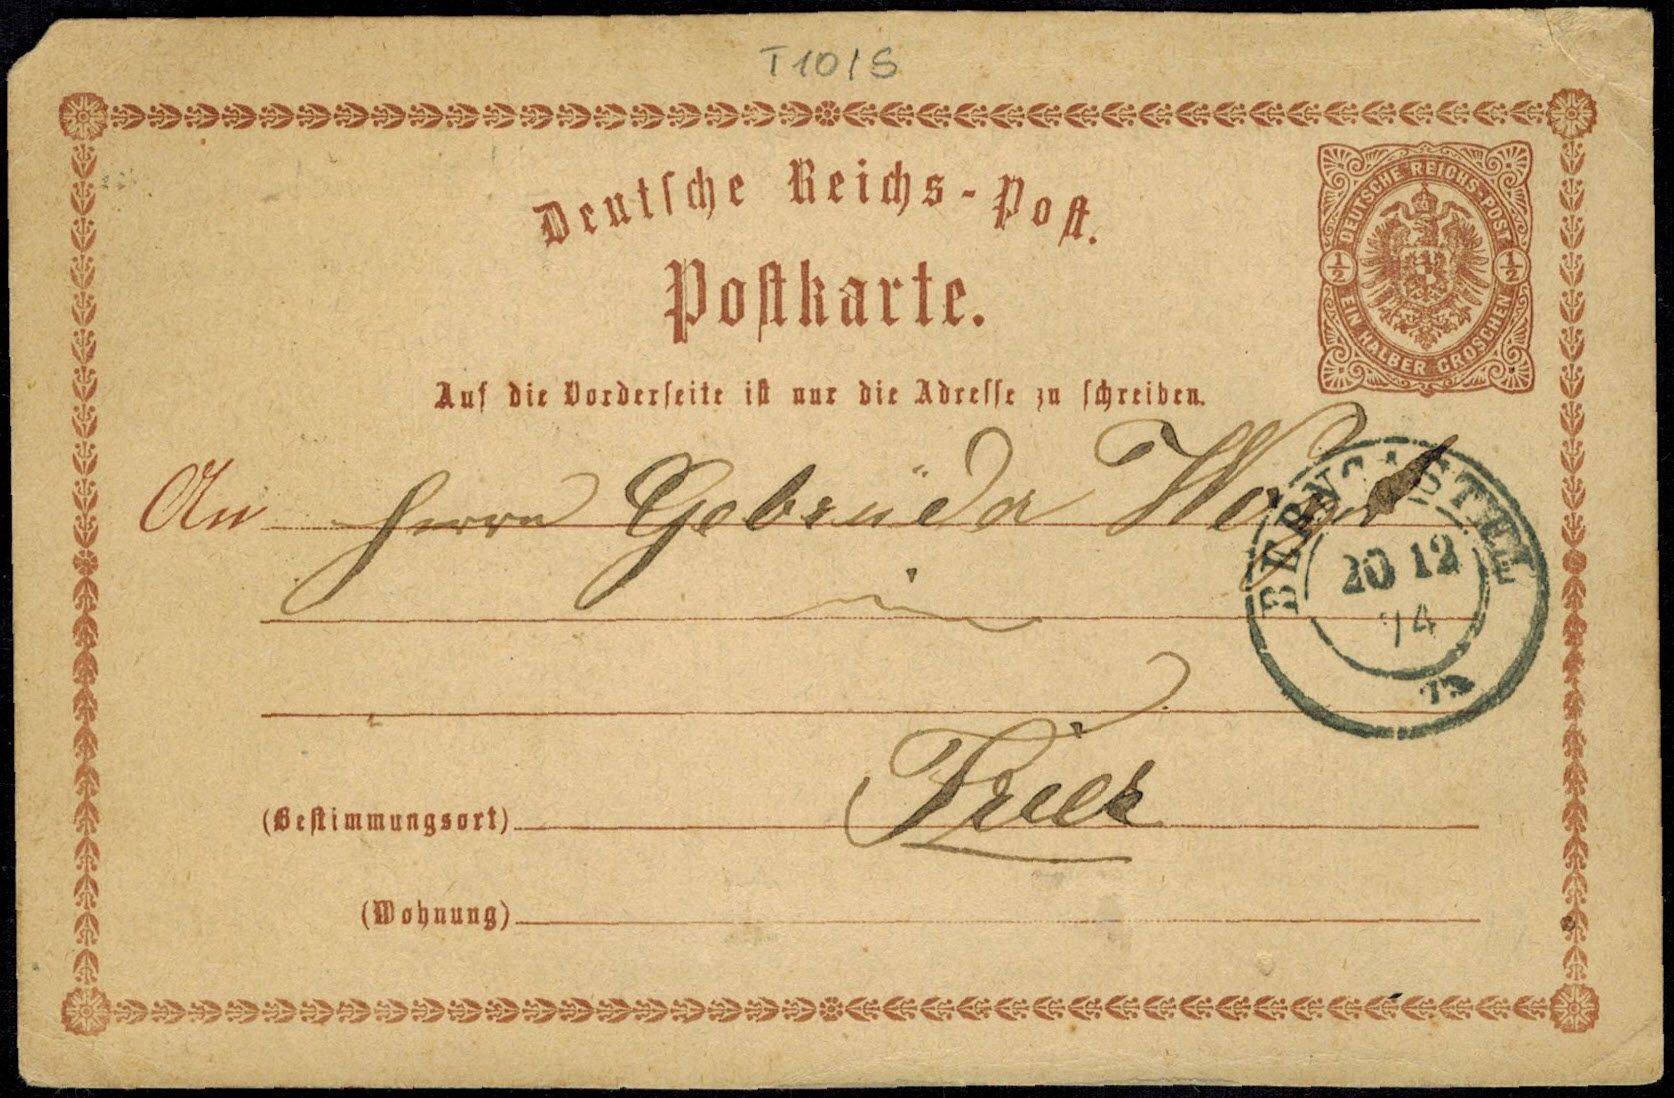 T 10/S
Deutsche Reichs-Post.
DEUTSCHE REICHS-POST
½ ½
EIN HALBER GROSCHEN
Postkarte.
Auf die Vorderseite ist nur die Adresse zu schreiben.
An Herrn Gebrüder
BERNCASTEL
20 12
74
in
Trier
(Bestimmungsort)
(Wohnung)